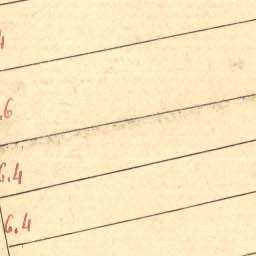 4
.6
6.4
6.4